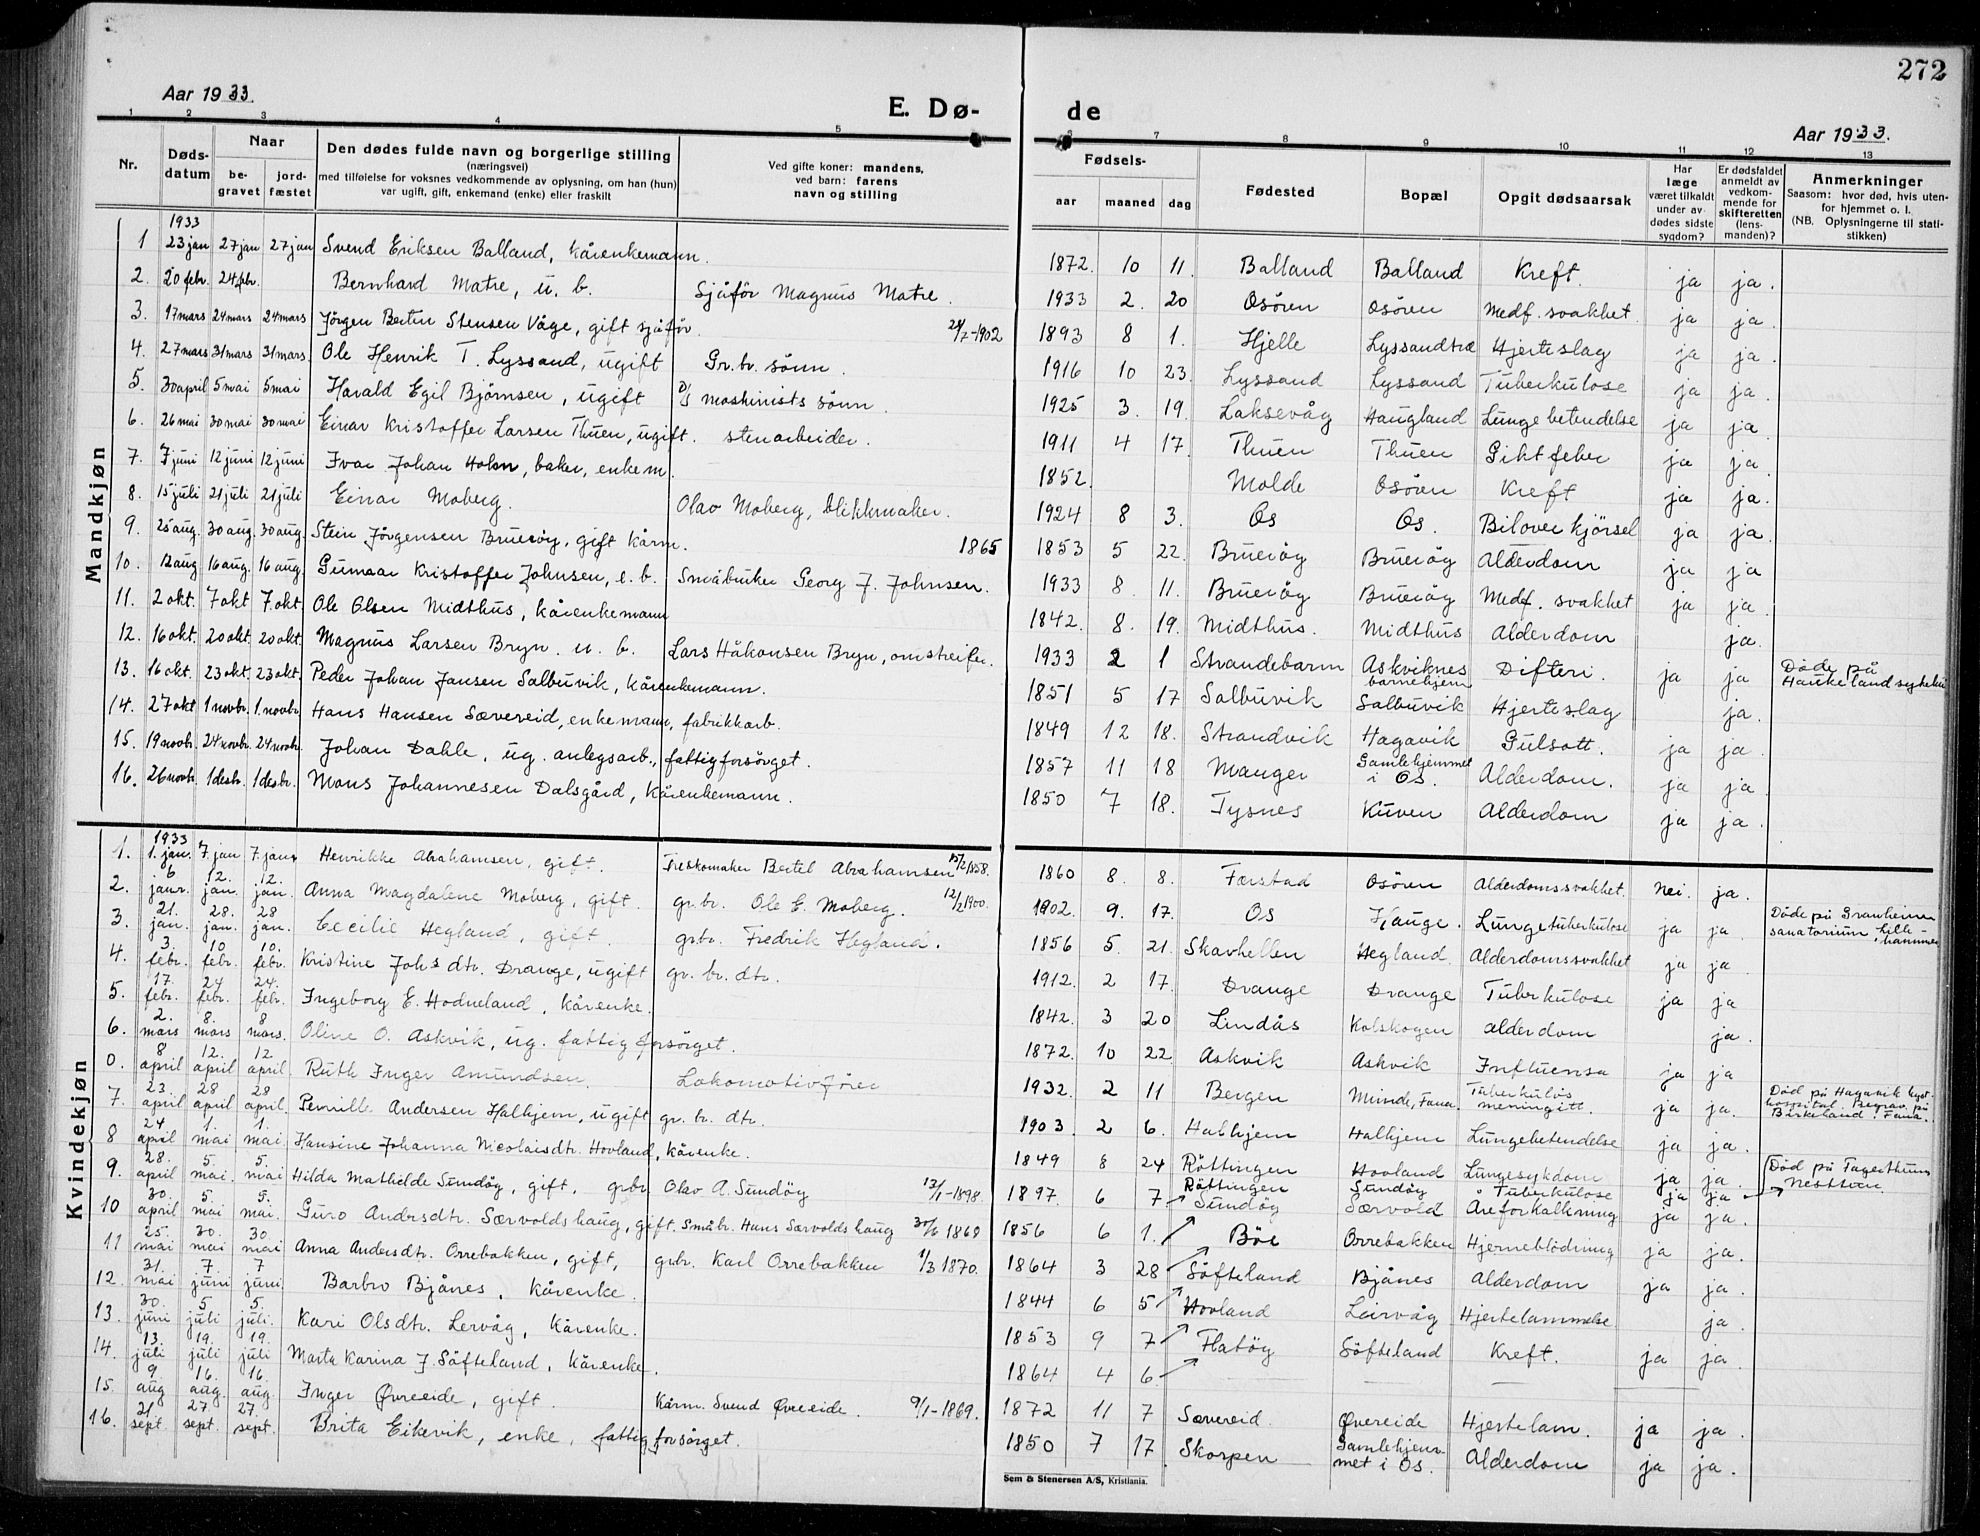 272
Aar 1933.
E. Dø-
de
Aar 1933.
1 2 3 4 5 6 7 8 9 10 11 12 13
Nr.
Døds-
datum
Naar
be-
gravet
jord-
fæstet
Den dødes fulde navn og borgerlige stilling
(næringsvei)
med tilføielse for voksnes vedkommende av oplysning, om han (hun)
var ugift, gift, enkemand (enke) eller fraskilt
Ved gifte koner: mandens,
ved barn: farens
navn og stilling
Fødsels-
aar maaned dag
Fødested
Bopæl
Opgit dødsaarsak
Har
læge
været tilkaldt
under av-
dødes sidste
sygdom?
Er dødsfaldet
anmeldt av
vedkom-
mende for
skifteretten
(lens-
manden)?
Anmerkninger
Saasom: hvor død, hvis uten-
for hjemmet o. l.
(NB. Oplysningerne til stati-
stikken)
Mandkjøn
1933
1 23 jan 27 jan 27 jan Svend Eriksen Balland, kårenkemann. 1872. 10 11. Balland Balland Kreft. ja ja.
2. 20 febr. 24 febr. Bernhard Matre, u. b. Sjåfør Magnus Matre. 1933 2. 20 Osören Osören Medf. svakhet. ja ja.
3. 17 mars 24 mars 24 mars Jörgen Bertin Stensen Våge, gift sjåför. 24/7-1902 1893 8 1. Hjelle Lyssandtræ Hjerteslag ja ja.
4. 27 mars 31 mars 31 mars. Ole Henrik T. Lyssand, ugift Gr.br. sönn. 1916 10 23. Lyssand Lyssand Tuberkulose ja ja.
5. 30 april 5 mai 5 mai Harald Egil Björnsen, ugift D/S maskinists sönn. 1925 3. 19. Laksevåg Haugland Lungebetendelse ja ja.
6. 26 mai 30 mai 30 mai Einar Kristoffer Larsen Thuen, ugift. stenarbeider. 1911 4 17. Thuen Thuen Giktfeber ja ja.
7. 7 juni 12 juni 12 juni Ivar Johan Holm, baker, enkem. 1852. Molde Osören Kreft ja ja.
8. 15 juli 21 juli 21 juli Einar Moberg. Olav Moberg, blikkmaker. 1924 8 3. Os Os. Biloverkjörsel ja ja.
9. 25 aug. 30 aug. 30 aug. Stein Jörgensen Brueröy, gift kårm. 1865 1853 5 22. Brueröy Brueröy Alderdom ja ja
10. 12 aug 16 aug. 16 aug. Gunnar Kristoffer Johnsen, e. b. Småbruker Georg J. Johnsen. 1933 8. 11. Brueröy Brueröy Medf. svakhet ja ja.
11. 2 okt. 7 okt 7 okt. Ole Olsen Midthus, kårenkemann 1842. 8. 19. Midthus. Midthus Alderdom ja.
12. 16 okt. 20 okt. 20 okt. Magnus Larsen Bryn. u. b. Lars Håkonsen Bryn, omstreifer. 1933 2 1 Strandebarm Askviknes barnehjem Difteri. ja ja Döde på Haukeland sykehus
13. 16 okt. 23 okt. 23 okt. Peder Johan Jansen Salbuvik, kårenkemann. 1851 5 17 Salbuvik Salbuvik Hjerteslag ja.
14. 27 okt 1 novbr. 1 novbr. Hans Hansen Sævereid, enkemann, fabrikkarb. 1849 12 18. Strandvik Hagavik Gulsott. ja ja.
15. 19 novbr. 24 novbr. 24 novbr. Johan Dahle, ug. anlegsarb., fattigforsörget. 1857 11 18 Manger Gamlehjemmet i Os. Alderdom. ja ja.
16. 26 novbr. 1 desbr. 1 desbr. Mons Johannesen Dalsgård, kårenkemann. 1850 7 18. Tysnes Kuven Alderdom ja ja.
Kvindekjøn
1933
1. 1. jan. 7. jan 7. jan Henrikke Abrahamsen, gift. Treskomaker Bertel Abrahamsen 15/2 1858. 1860 8. 8. Færstad Osören Alderdomssvakhet. nei. ja.
2. 6 janr. 12. jan. 12. jan. Anna Magdalene Moberg, gift. gr.br. Ole E. Moberg. 12/2 1900. 1902. 9. 17. Os Hauge. Lungetuberkulose ja ja Döde på Granheimen sanatorium, Lillehammer
3. 21. jan. 28. jan. 28 jan. Cecilie Hegland, gift. grbr. Fredrik Hegland. 1856 5. 21. Skavhellen Hegland. Alderdomssvakhet ja ja.
4. 3. febr. 10 febr. 10. febr. Kristine Johs dtr. Drange, ugift gr. br. dtr. 1912. 2 17. Drange Drange Tuberkulose ja ja
5. 17. febr. 24 febr. 24. febr. Ingeborg E. Hodneland, kårenke. 1842. 3 20 Lindås Kolskogen alderdom ja.
6. 2. mars 8. mars 8 mars. Oline O. Askvik, ug. fattigforsörget. 1872. 10 22 Askvik Askvik Influensa ja ja
0. 8 april 12. april 12. april Ruth Inger Amundsen Lokomotivförer 1932. 2 11 Bergen Minde, Fana Tuberkulös meningitt. ja ja. Död på Hagavik kyst-hospital. Begrav. på Birkeland, Fana.
7. 23. april 28 april 28 april. Pernille Andersen Halhjem, ugift gr. br. dtr. 1903. 2 6. Halhjem Halhjem Lungebetendelse ja ja.
8 24 april 1. mai 1. mai Hansine Johanna Nicolaisdtr. Hovland, kårenke. 1849 8 24 Röttingen Hovland Lungesykdom ja ja.
9. 28. april 5. mai. 5. mai Hilda Mathilde Sundöy, gift. grbr. Olav A. Sundöy 13/1-1898. 1897. 6 7 Röttingen Sundöy Tuberkulose ja ja Död på Fagerthun, Nesttun.
10 30. april 5. mai 5. mai. Guro Andersdtr. Særvoldshaug, gift. Småbr. Hans Særvoldshaug 30/6 1869 1856 6 1. Sundöy Særvold Åreforkalkning ja ja.
11 25. mai 30. mai 30 mai Anna Andersdtr. Orrebakken, gift, grbr. Karl Orrebakken 1/3 1870. 1864 3 28 Böe Orrebakken Hjerneblödning ja ja.
12. 31. mai 7. juni 7 juni. Barbro Bjånes, kårenke. 1844 6 5 Söfteland Bjånes Alderdom ja ja.
13. 30. juni 5 juli 5. juli. Kari Olsdtr. Lervåg, kårenke. 1853 9 7 Hovland Leirvåg Hjertelammelse ja.
14. 13. juli 19. juli 19. juli Marta Karina J. Söfteland, kårenke. 1864 4 6. Flatöy Söfteland Kreft. ja ja.
15. 9 aug 16. aug. 16. aug. Inger Øvreeide, gift. Kårm. Svend Øvreeide. 9/1-1869. 1872 11 7 Sævereid. Øvreeide Hjertelam. ja ja.
16. 21 sept. 27 sept. 27. sept. Brita Eikevik, enke, fattigforsörget. 1850 7 17 Skorpen Gamlehjem-met i Os. Alderdom ja ja.
Sem & Stenersen A/S, Kristiania.